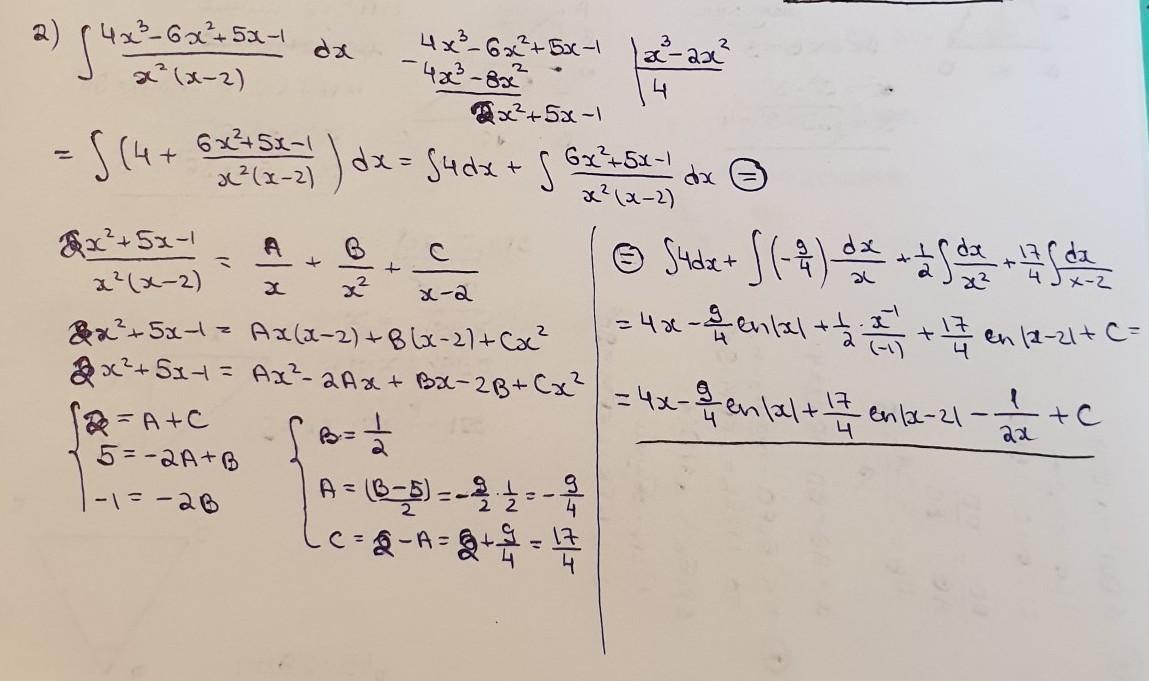 2) ∫ (4x³-6x²+5x-1)/(x²(x-2)) dx
4x³-6x²+5x-1 | x³-2x²
-4x³-8x² | 4
2x²+5x-1
= ∫ (4 + (6x²+5x-1)/(x²(x-2))) dx = ∫4dx + ∫ (6x²+5x-1)/(x²(x-2)) dx ⊜
(2x²+5x-1)/(x²(x-2)) = A/x + B/x² + C/(x-2)
2x²+5x-1 = Ax(x-2)+B(x-2)+Cx²
2x²+5x-1 = Ax²-2Ax+Bx-2B+Cx²
{ 2 = A+C
5 = -2A+B
-1 = -2B
{ B = 1/2
A = (B-5)/2 = -9/2 · 1/2 = -9/4
C = 2-A = 2+9/4 = 17/4
⊜ ∫4dx + ∫(-9/4) dx/x + 1/2 ∫ dx/x² + 17/4 ∫ dx/(x-2)
= 4x - 9/4 ln|x| + 1/2 · x⁻¹/(-1) + 17/4 ln|x-2| + C =
= 4x - 9/4 ln|x| + 17/4 ln|x-2| - 1/(2x) + C